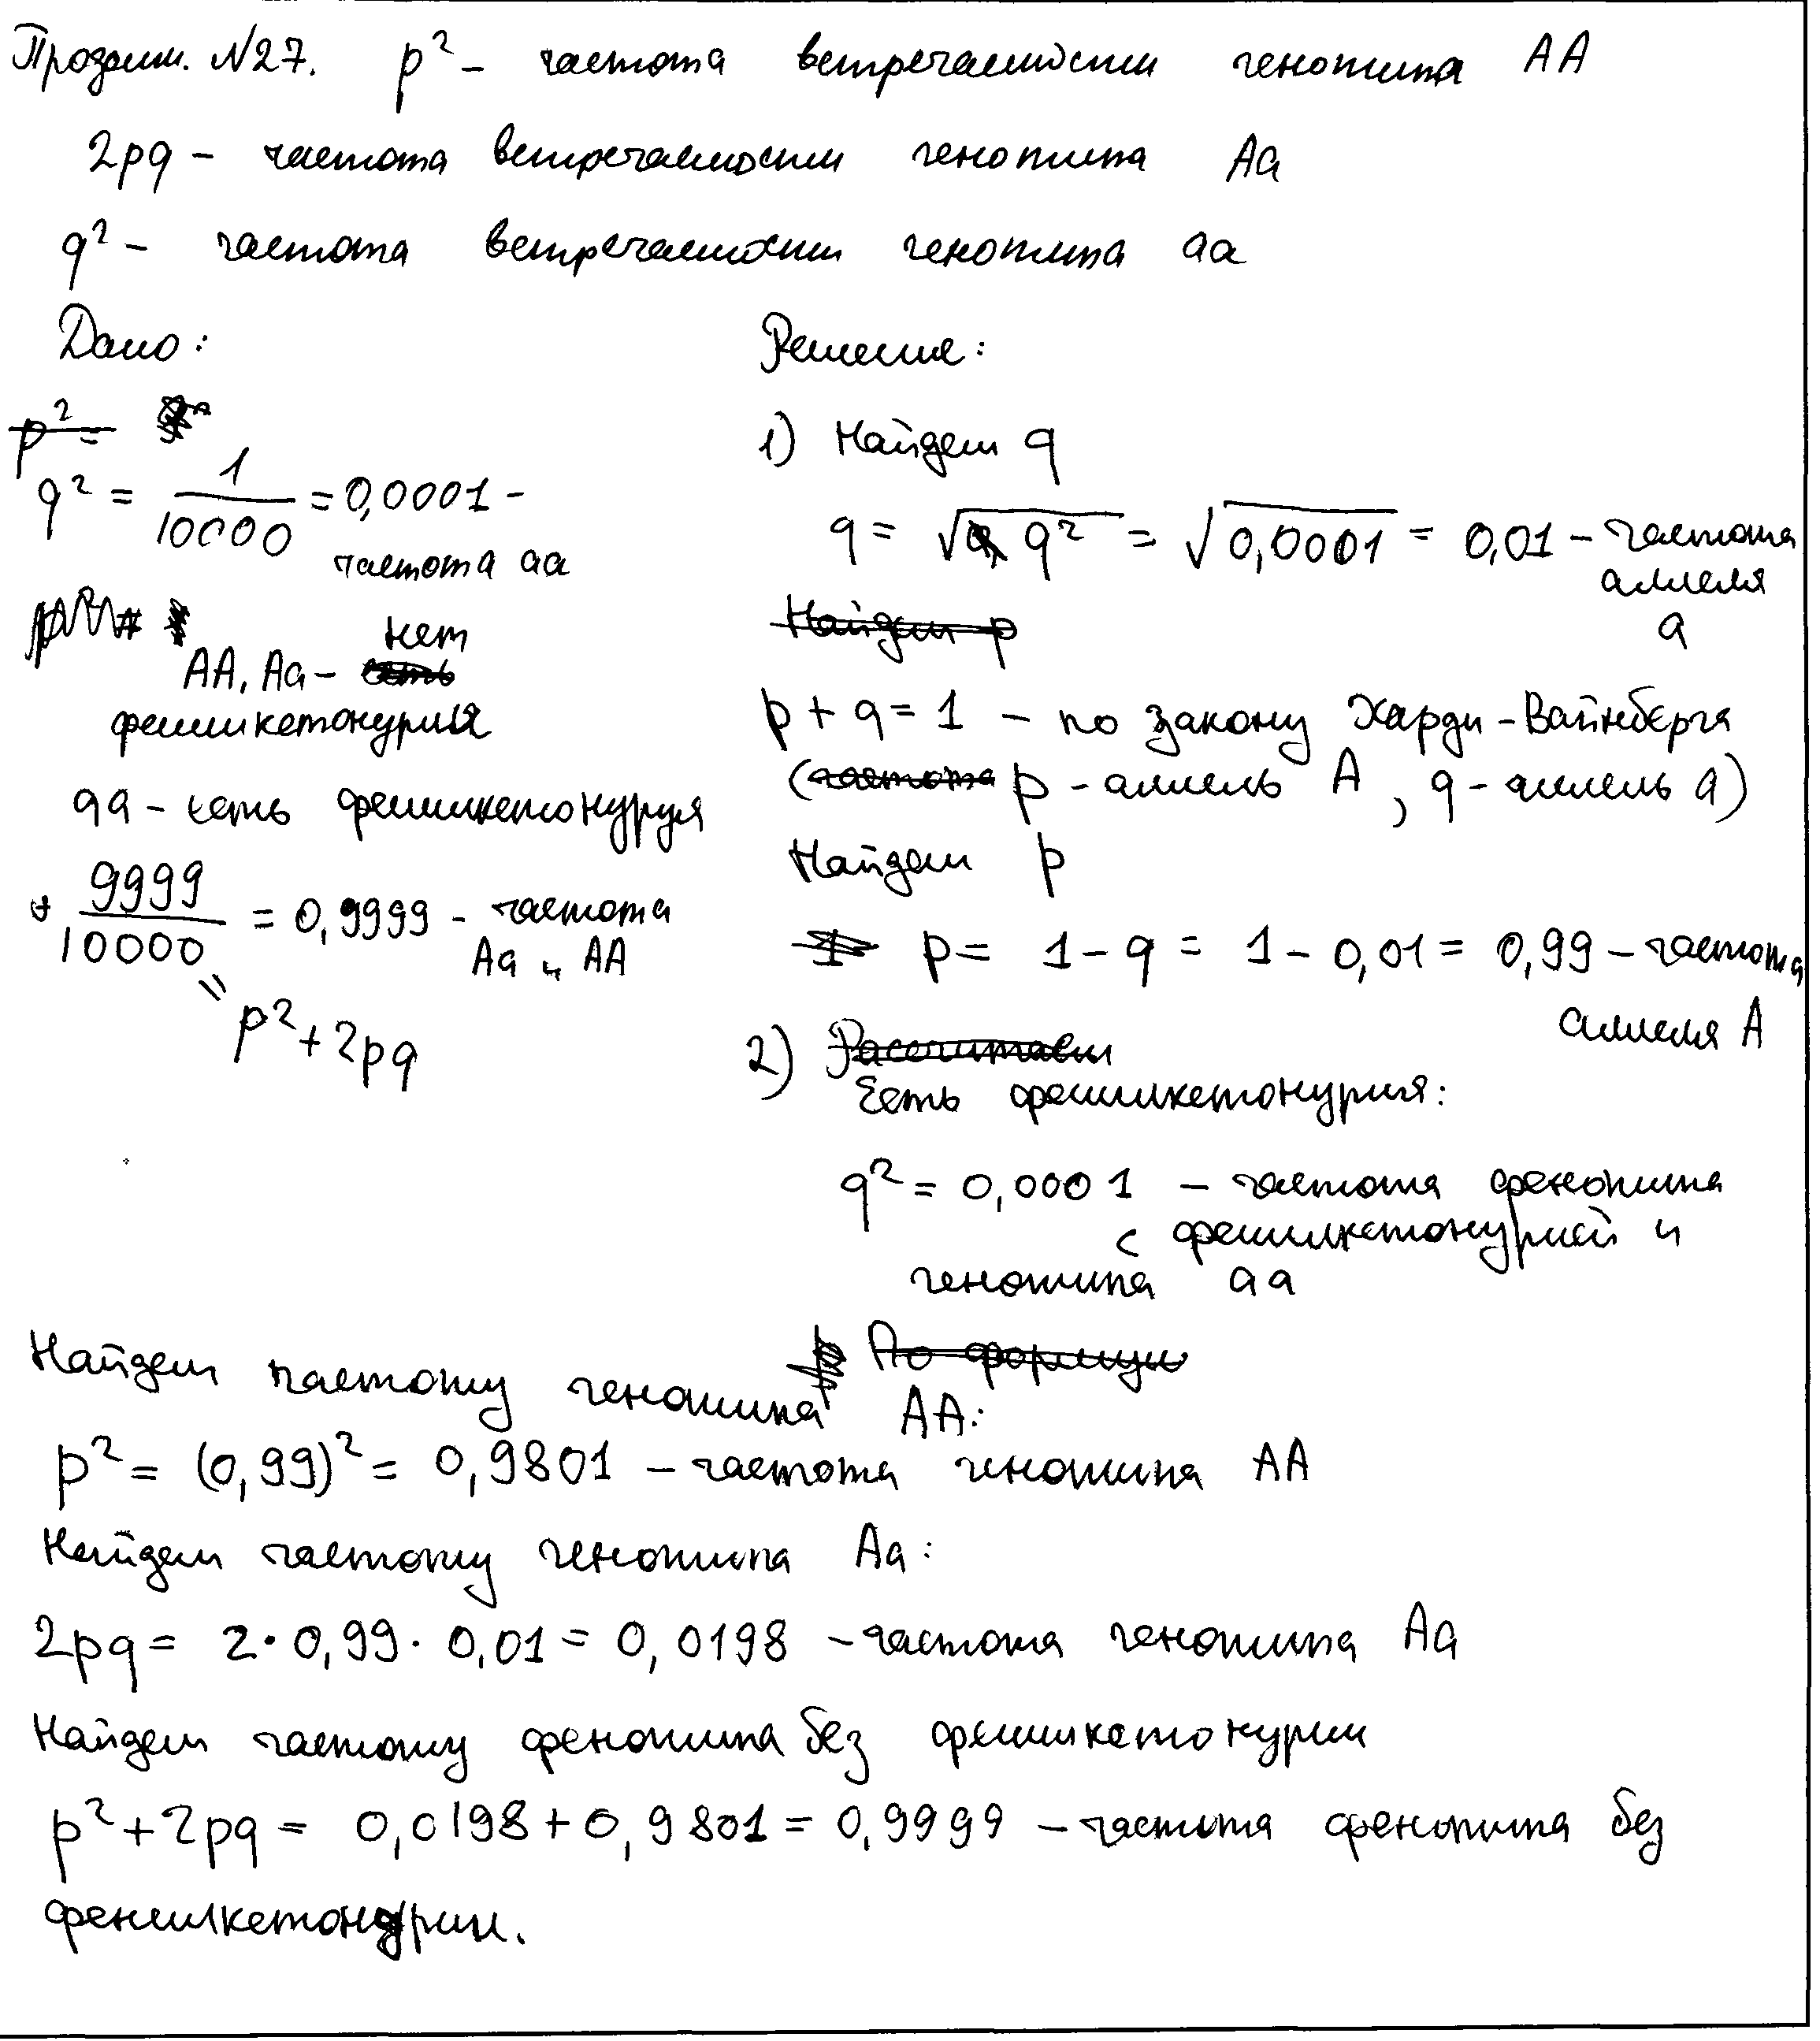 Продолж. №27. p² – частота встречаемости генотипа AA
2pq – частота встречаемости генотипа Aa
q² – частота встречаемости генотипа aa
Дано:
p² =
q² = 1/10000 = 0,0001 –
частота aa
нет
AA, Aa – есть
фенилкетонурия
aa – есть фенилкетонурия
9999/10000 = 0,9999 – частота
Aa и AA
= p² + 2pq
Решение:
1) Найдем q
q = √q² = √0,0001 = 0,01 – частота
аллеля
a
Найдем p
p + q = 1 – по закону Харди-Вайнберга
(частота p – аллель A, q – аллель a)
Найдем p
1 p = 1 – q = 1 – 0,01 = 0,99 – частота
аллеля A
2) Рассчитаем
Есть фенилкетонурия:
q² = 0,0001 – частота фенотипа
с фенилкетонурией и
генотипа aa
По формуле
Найдем частоту генотипа AA:
p² = (0,99)² = 0,9801 – частота генотипа AA
Найдем частоту генотипа Aa:
2pq = 2·0,99·0,01 = 0,0198 – частота генотипа Aa
Найдем частоту фенотипа без фенилкетонурии
p² + 2pq = 0,0198 + 0,9801 = 0,9999 – частота фенотипа без
фенилкетонурии.